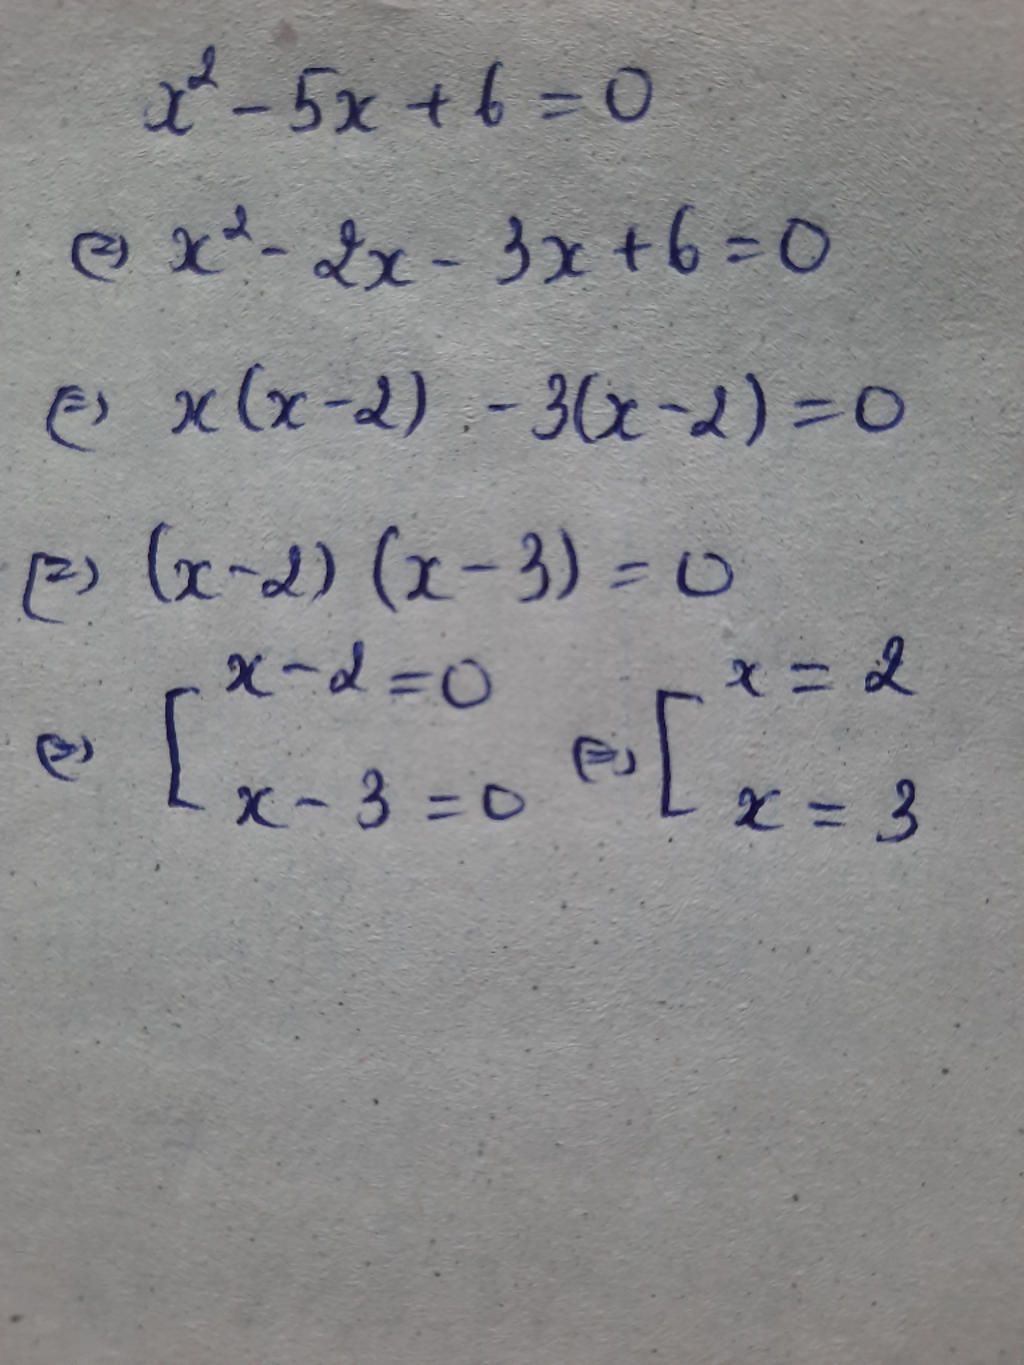 x² - 5x + 6 = 0
⇔ x² - 2x - 3x + 6 = 0
⇔ x(x-2) - 3(x-2) = 0
⇔ (x-2) (x-3) = 0
⇔ [ x-2 = 0 ⇔ [ x = 2
x - 3 = 0 x = 3